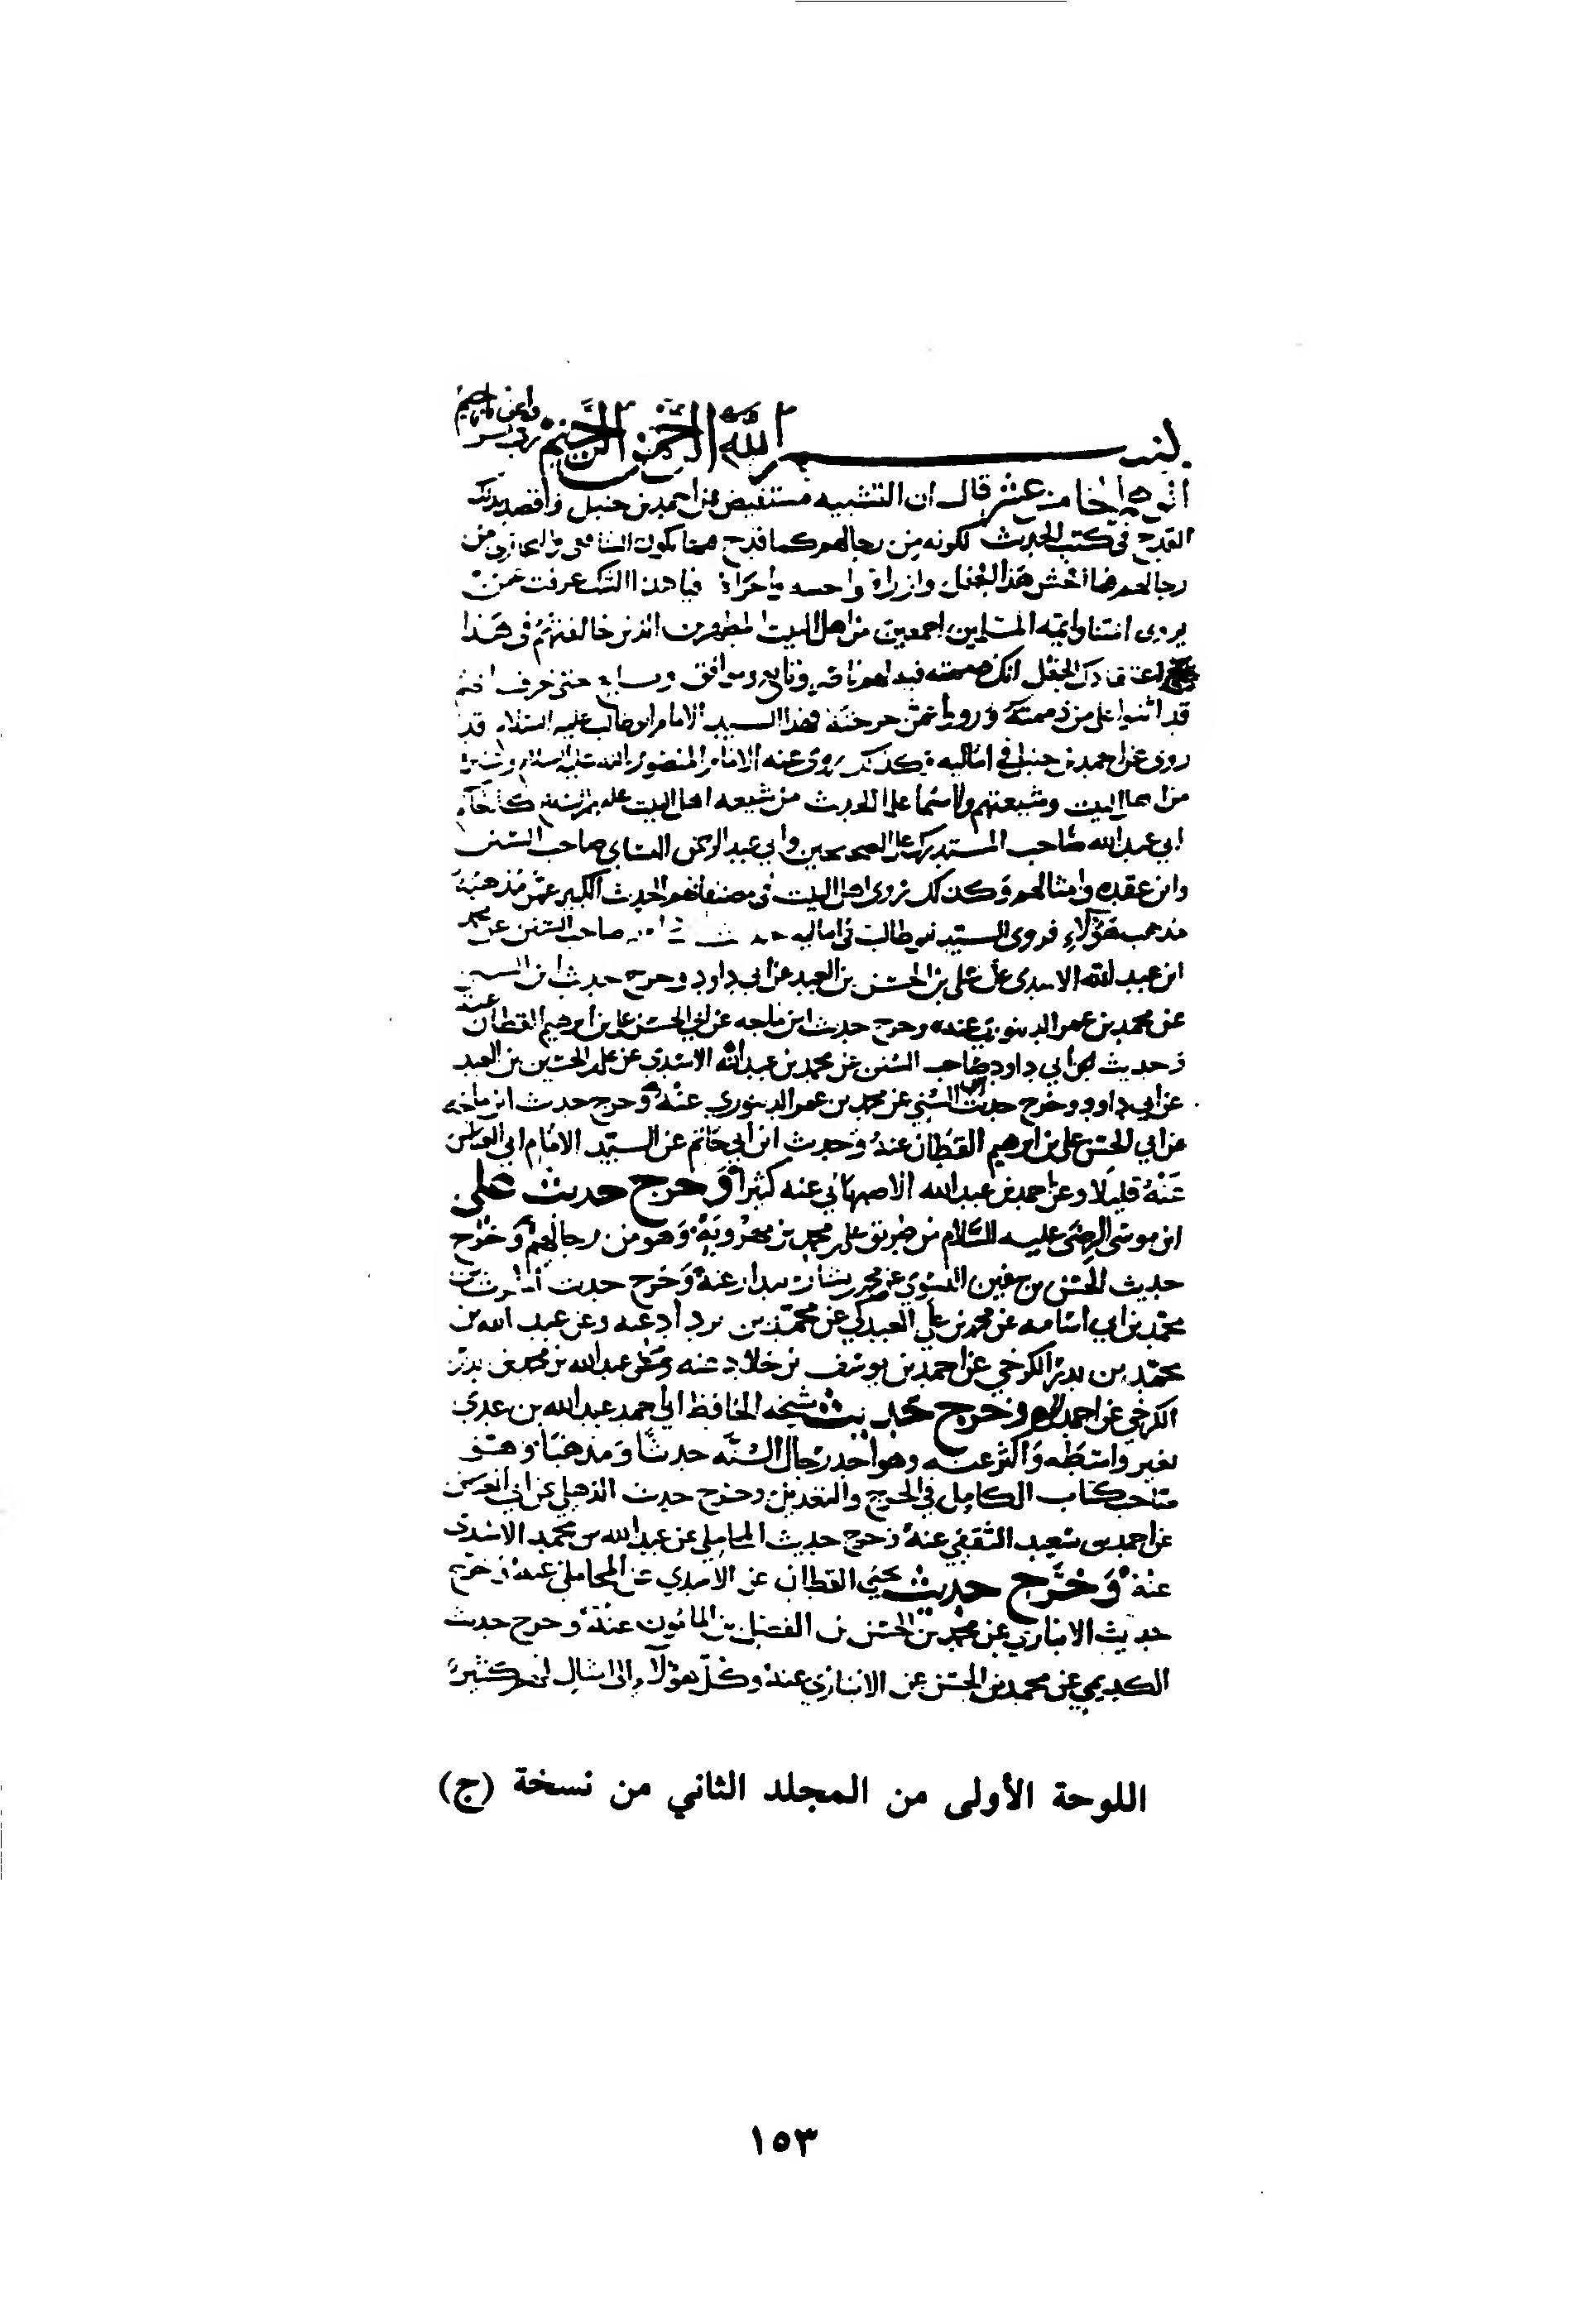 بسم الله الرحمن الرحيم
الخامس عشر قال ان التشبيه مستفيض عن احمد بن حنبل واقصد بذلك
القدح في كتب الحديث لكونه من رجالهم كما قدح بكون الشافعي من
رجالهم فما افحش هذا
يروى ائمتنا وايمة المسلمين اجمعين من اهل البيت المطهرين الذين خالفتهم في هذا
قد اثنوا على من ذممته ورووا عمن جرحته فهذا السيد الامام ابو طالب عليه السلام قد
روى عن احمد بن حنبل في اماليه وكذلك روى عنه الامام المنصور بالله عليه السلام
من اهل البيت وشيعتهم ولا سيما علما الحديث من شيعة اهل البيت كالحاكم
ابي عبد الله صاحب المستدرك على الصحيحين وابي عبد الرحمن النساي صاحب السنن
وابن عقده وامثالهم وكذلك روى اهل البيت في مصنفاتهم الحديث الكبير عمن مذهبه
مذهب هؤلاء فروى السيد ابو طالب في اماليه صاحب السنن عن محمد
ابن عبد الله الاسدي عن علي بن الحسن بن العبد عن ابي داود وخرج حديث ابن السني
عن محمد بن عمر الدينوري عنه وخرج حديث ابن ماجه عن ابي الحسن علي بن ابرهيم القطان عنه
وحديث ابي داود صاحب السنن عن محمد بن عبد الله الاسدي عن علي بن الحسين بن العبد
عن ابي داود وخرج حديث ابن السني عن محمد بن عمر الدينوري عنه وخرج حديث ابن ماجه
عن ابي الحسن علي بن ابرهيم القطان عنه وحديث ابن ابي حاتم عن السيد الامام ابي العباس
عنه قليلا وعن احمد بن عبد الله الاصبهاني عنه كثيرا وخرج حديث علي
ابن موسى الرضى عليه السلام من طريق علي بن محمد بن مهرويه وهو من رجالهم وخرج
حديث الحسن بن سفين النسوي عن محمد بن بشار بندار عنه وخرج حديث
محمد بن ابي اسامه عن محمد بن علي العبدكي عن محمد بن يزداد عنه وعن عبد الله بن
محمد بن بدر الكرخي عن احمد بن يوسف بن خلاد عنه وعن عبد الله بن محمد بن بدر
الكرخي عن احمد وخرج حديث شيخه الحافظ ابي احمد عبد الله بن عدي
بغير واسطه واكثر عنه وهو احد رجال السنه حديثا ومذهبا وهو
صاحب كتاب الكامل في الجرح والتعديل وخرج حديث الذهلي عن ابي العباس
عن احمد بن سعيد الثقفي عنه وخرج حديث المحاملي عن عبد الله بن محمد الاسدي
عنه وخرج حديث يحيى القطان عن الاسدي عن المحاملي عنه وخرج
حديث الانباري عن محمد بن الحسن بن الفضل بن المامون عنه وخرج حديث
الكديمي عن محمد بن الحسن عن الانباري عنه وكل هؤلاء الى امثال لهم كثير
اللوحة الأولى من المجلد الثاني من نسخة (ج)
١٥٣